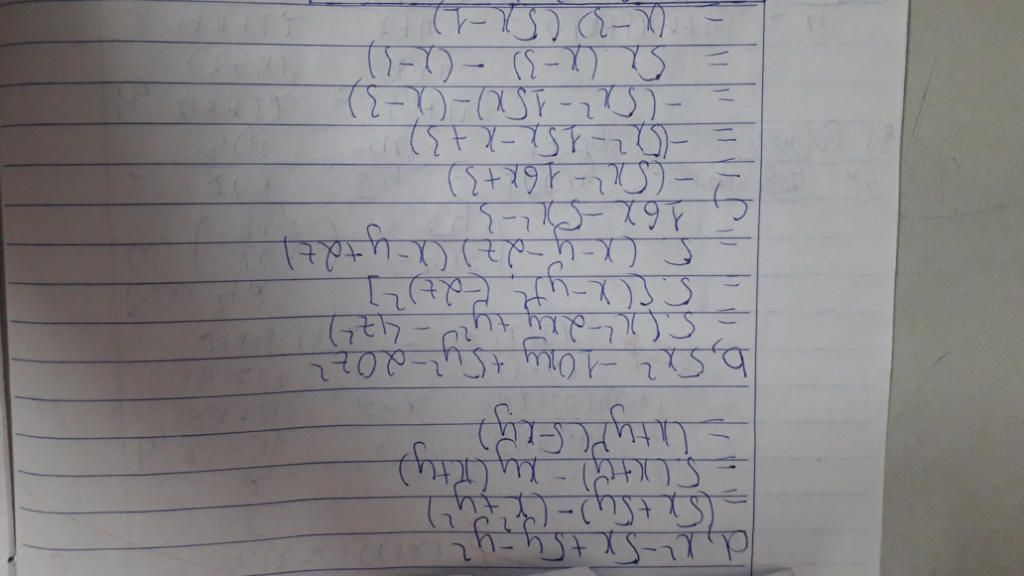 a, x² - 5x + 5y - y²
= (5x + 5y) - (x² + y²)
= 5(x+y) - xy(x+y)
= (x+y)(5-xy)
b, 5x² - 10xy + 5y² - 20z²
= 5.(x² - 2xy + y² - 4z²)
= 5.[(x-y)² (-2z)²]
= 5 (x-y-2z) (x-y+2z)
c, 16x - 5x² - 3
= -(5x² - 16x + 3)
= -(5x² - 15x - x + 3)
= -(5x² - 15x) - (x-3)
= 5x.(x-3) - (x-3)
= (x-3) (5x-1)